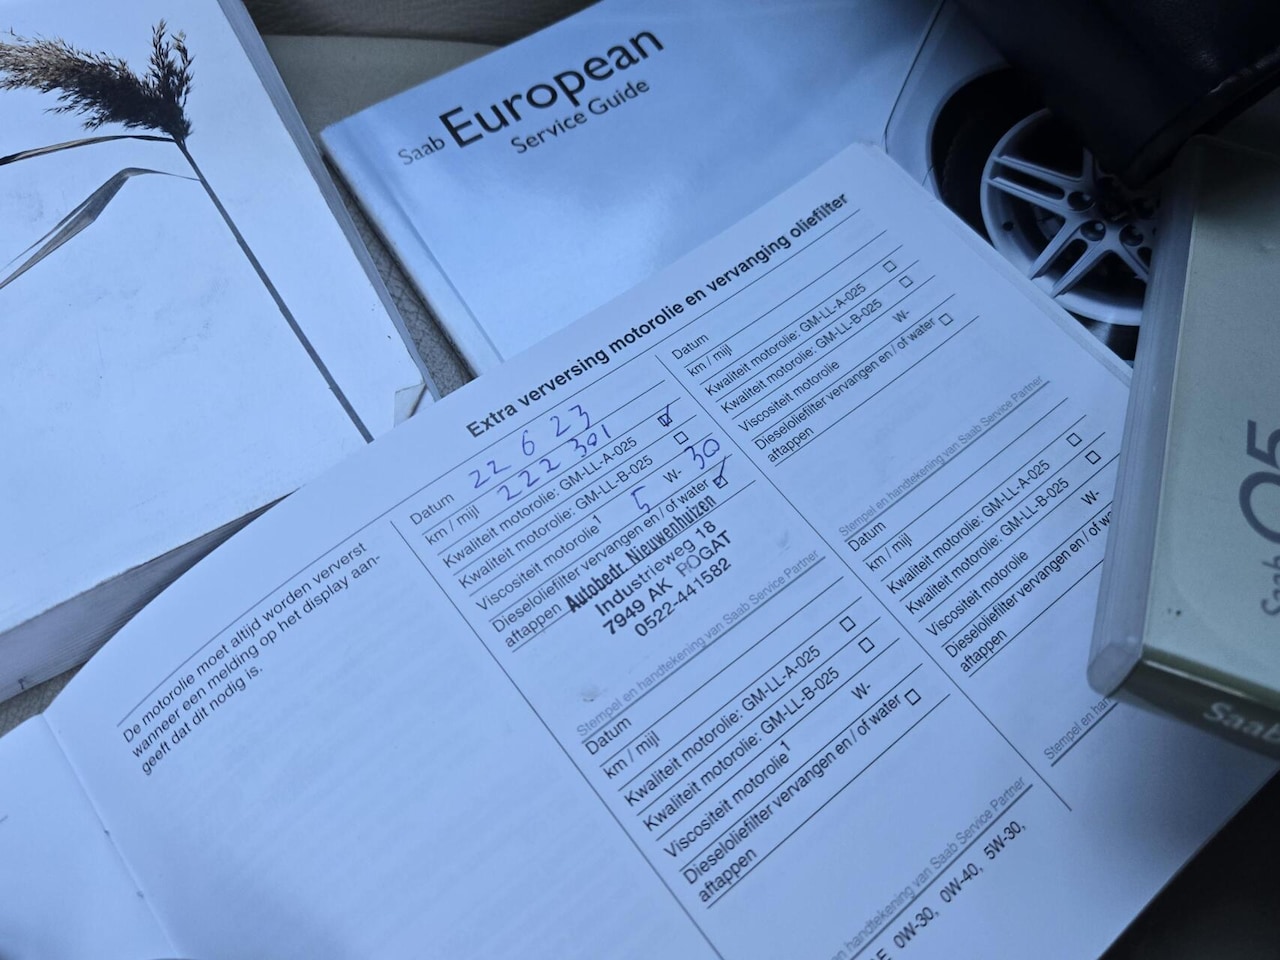 Saab European
Service Guide
Extra verversing motorolie en vervanging oliefilter
De motorolie moet altijd worden ververst
wanneer een melding op het display aan-
geeft dat dit nodig is.
Datum 22 6 23
km / mijl 222 301
Kwaliteit motorolie: GM-LL-A-025
Kwaliteit motorolie: GM-LL-B-025
Viscositeit motorolie1 5 W- 30
Dieseloliefilter vervangen en / of water
aftappen
Autobedr. Nieuwenhuizen
Industrieweg 18
7949 AK ROGAT
0522-441582
Stempel en handtekening van Saab Service Partner
Datum
km / mijl
Kwaliteit motorolie: GM-LL-A-025
Kwaliteit motorolie: GM-LL-B-025
Viscositeit motorolie1 W-
Dieseloliefilter vervangen en / of water
aftappen
en handtekening van Saab Service Partner
0W-30, 0W-40, 5W-30,
Datum
km / mijl
Kwaliteit motorolie: GM-LL-A-025
Kwaliteit motorolie: GM-LL-B-025
Viscositeit motorolie W-
Dieseloliefilter vervangen en / of water
aftappen
Stempel en handtekening van Saab Service Partner
Datum
km / mijl
Kwaliteit motorolie: GM-LL-A-025
Kwaliteit motorolie: GM-LL-B-025
Viscositeit motorolie W-
Dieseloliefilter vervangen en / of
aftappen
Stempel en
Saab
Saab